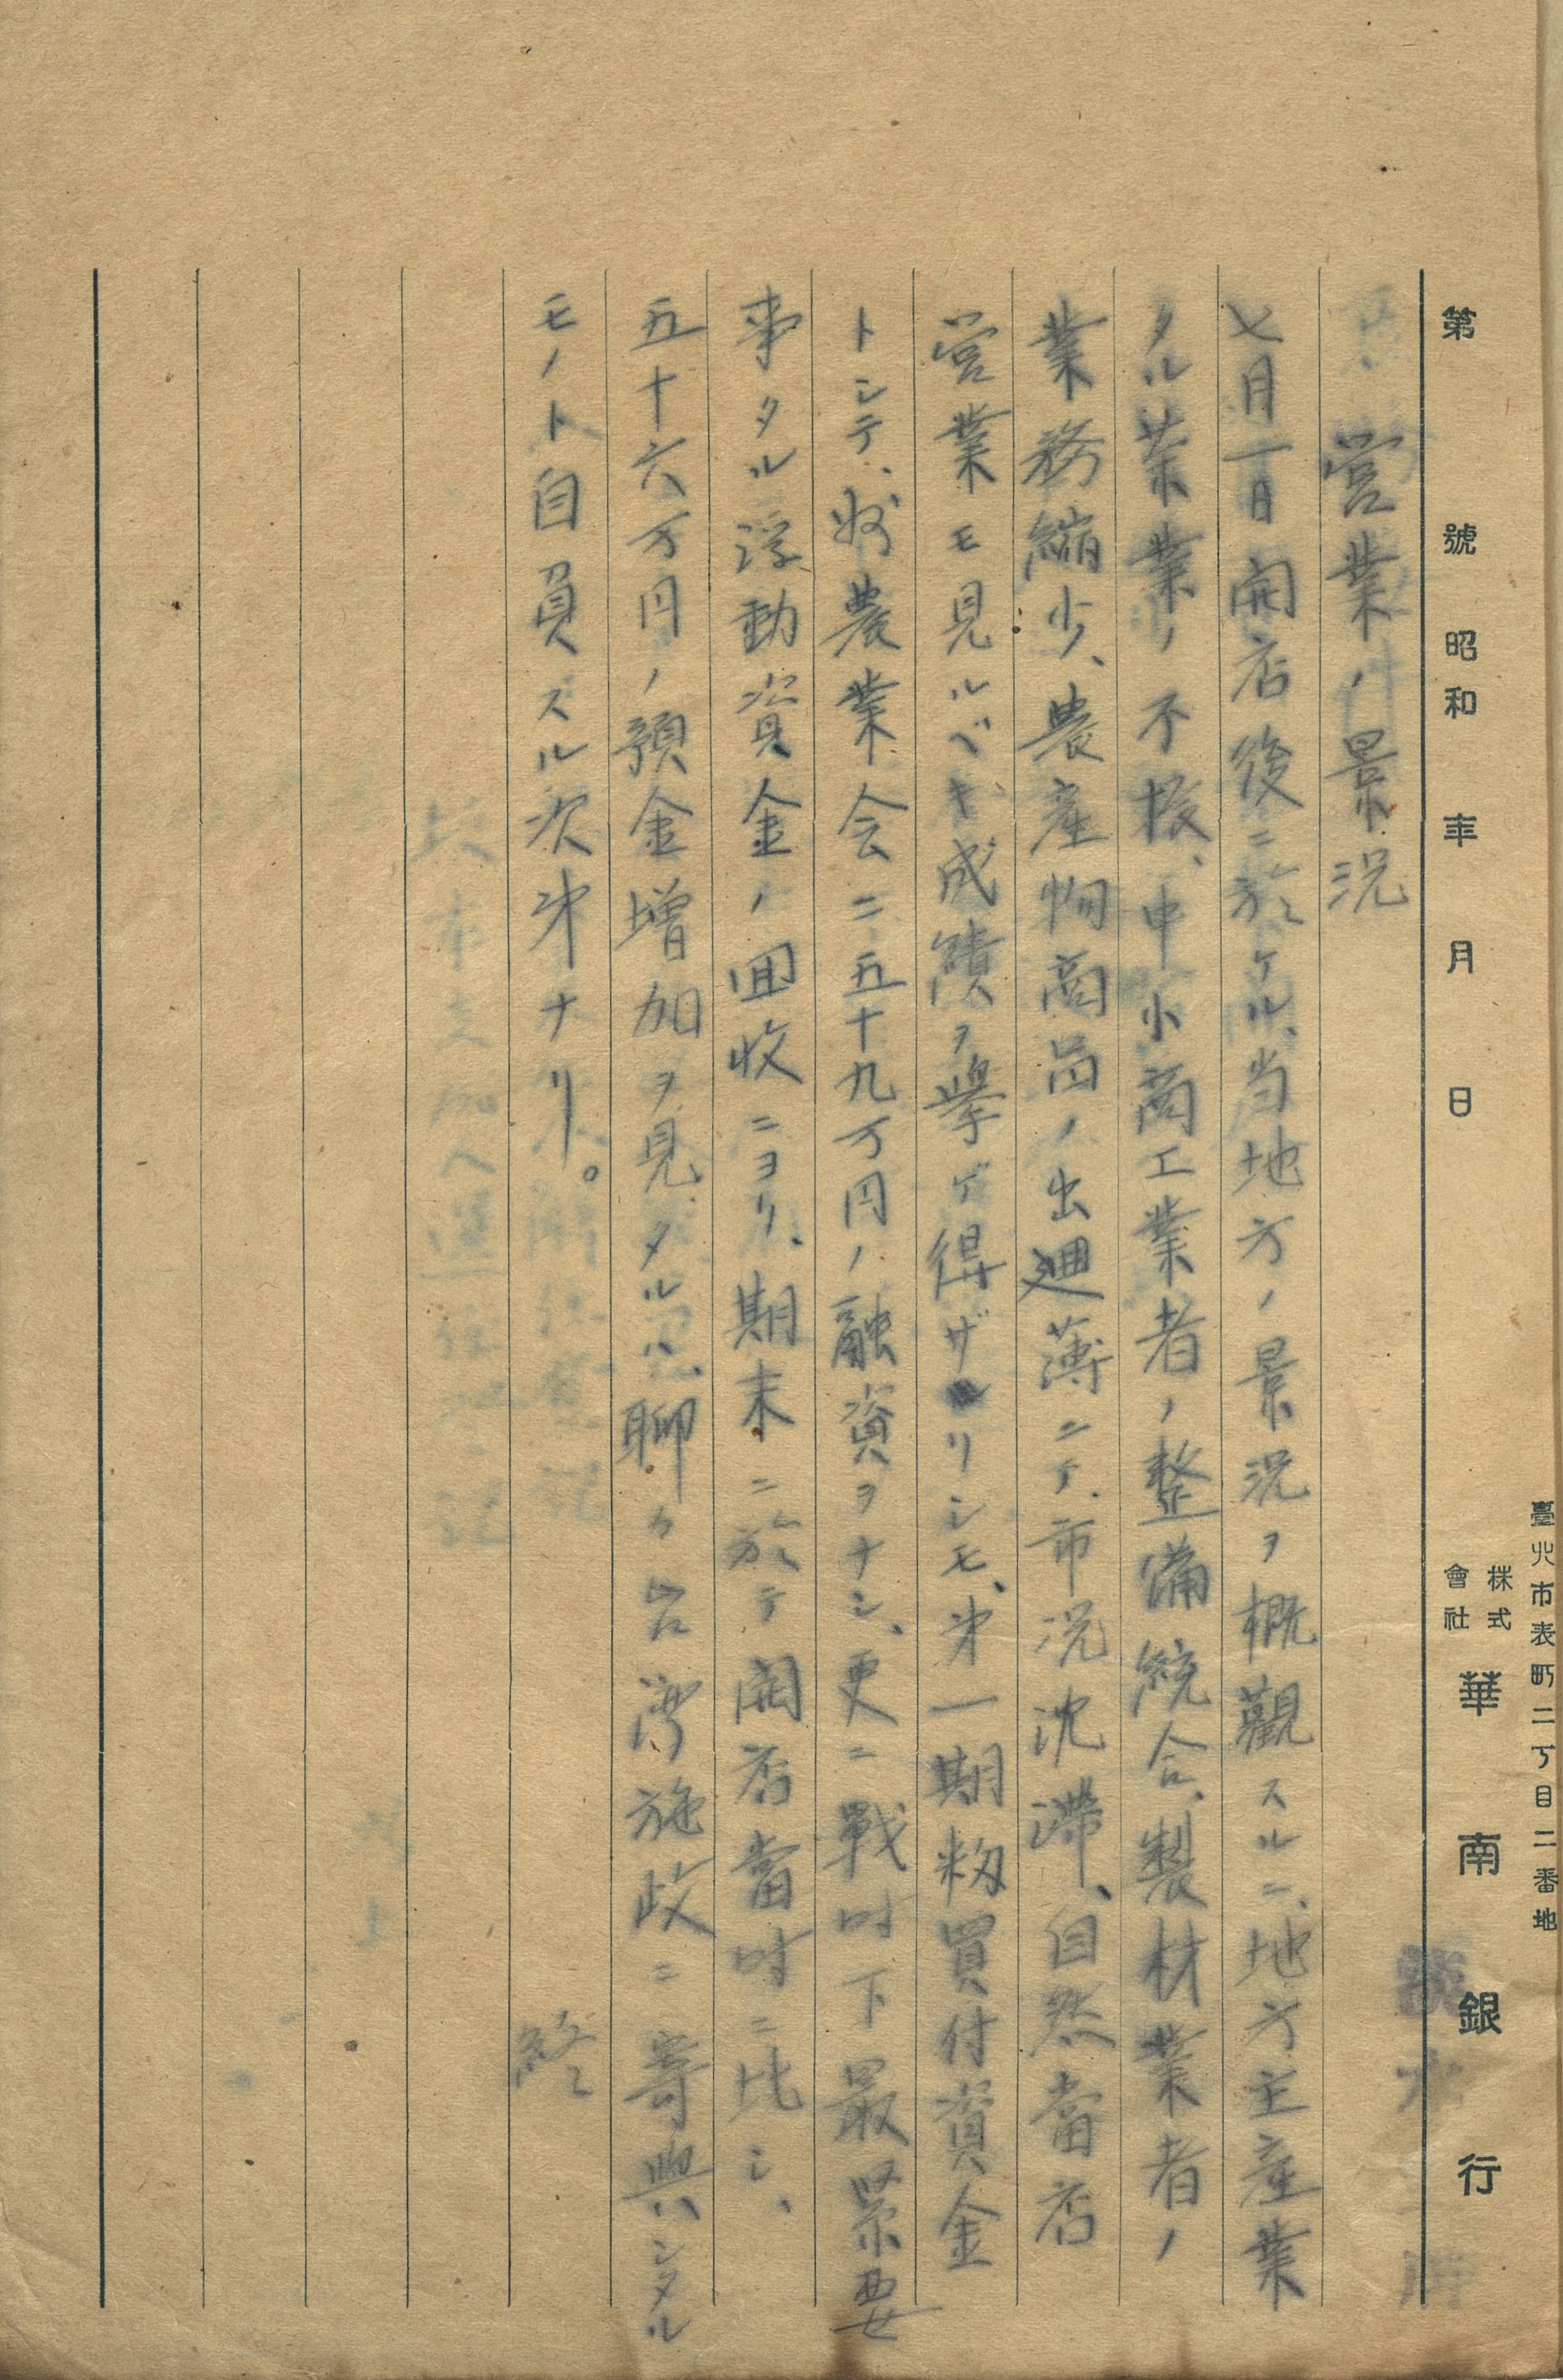 第 號 昭和 年 月 日
臺北市表町二丁目二番地
株式會社 華南銀行
五、営業ノ景況
七月一日開店後ニ於ケル、当地方ノ景況ヲ概觀スルニ、地方主産業
タル茶業ノ不振、中小商工業者ノ整備統合、製材業者ノ
業務縮少、農産物商品ノ出廻薄ニテ、市況沈滞、自然當店
営業モ見ルベキ成績ヲ擧ゲ得ザリシモ、㐧一期籾買付資金
トシテ、州農業会ニ五十九万円ノ融資ヲナシ、更ニ戰时下最緊要
事タル浮動資金ノ囬收ニヨリ、期末ニ於テ開店當时ニ比シ、
五十六万円ノ預金増加ヲ見タルハ、聊カ台湾施政ニ寄與シタル
モノト自負スル次㐧ナリ。 終